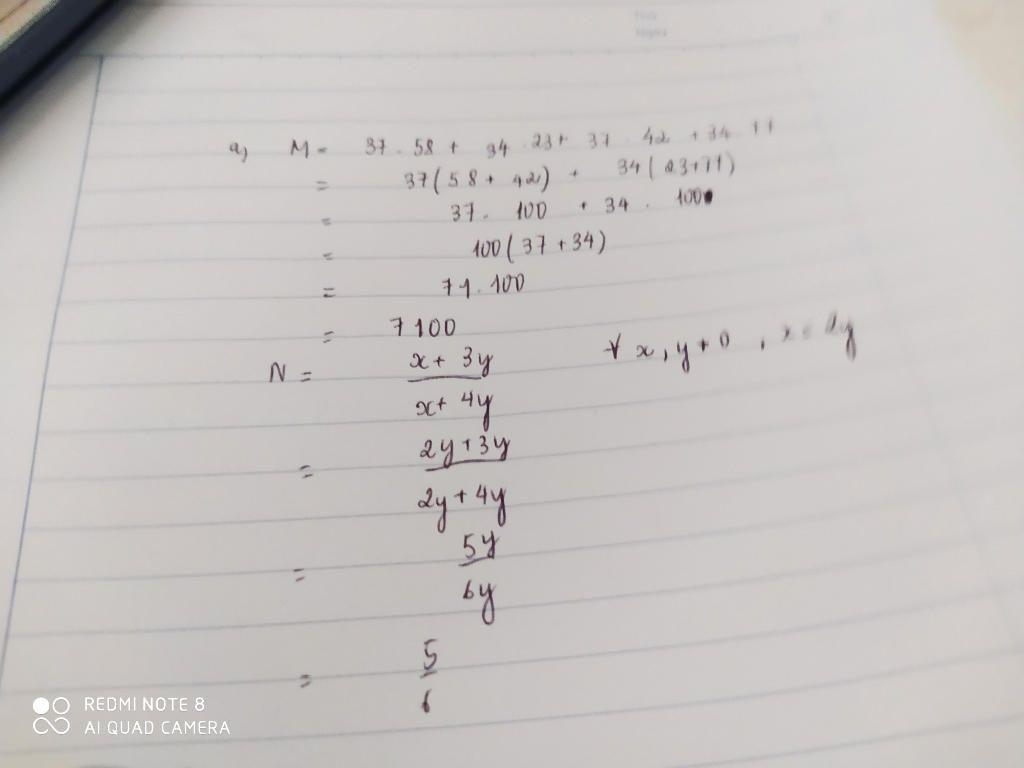 a, M = 37 . 58 + 34 . 23 + 37 . 42 + 34 . 77
= 37(58 + 42) + 34(23+77)
= 37 . 100 + 34 . 100
= 100(37+34)
= 71.100
= 7100
N = x + 3y / x + 4y ∀ x, y ≠ 0, x = 2y
= 2y + 3y / 2y + 4y
= 5y / 6y
= 5 / 6
REDMI NOTE 8
AI QUAD CAMERA